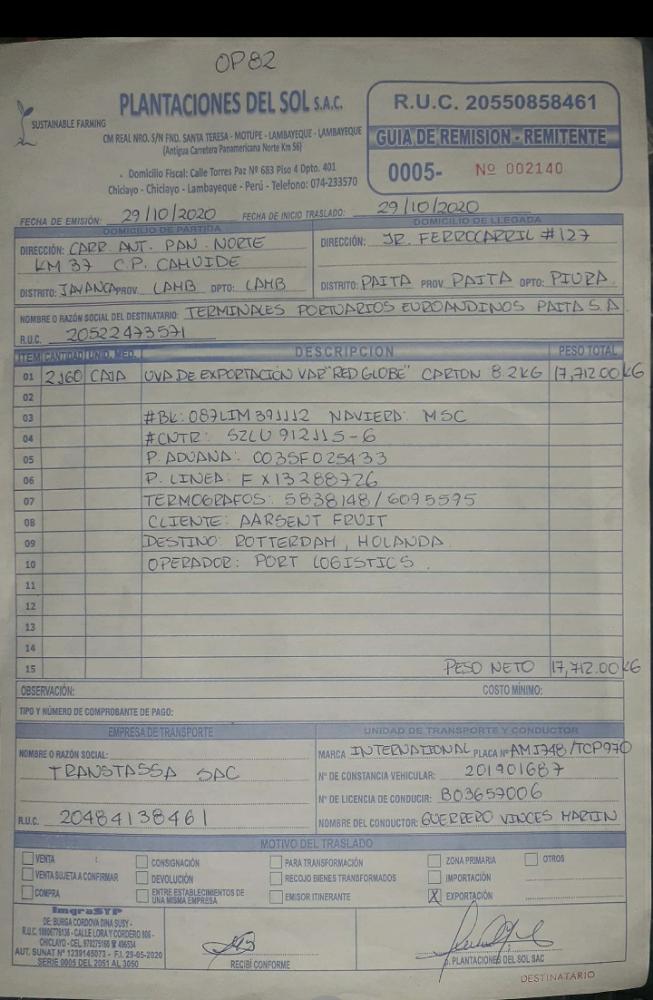 OP82
SUSTAINABLE FARMING
PLANTACIONES DEL SOL S.A.C.
CM REAL NRO. S/N FND. SANTA TERESA - MOTUPE - LAMBAYEQUE - LAMBAYEQUE
(Antigua Carretera Panamericana Norte Km 56)
. Domicilio Fiscal: Calle Torres Paz Nº 683 Piso 4 Dpto. 401
Chiclayo - Chiclayo - Lambayeque - Perú - Telefono: 074-233570
R.U.C. 20550858461
GUIA DE REMISION - REMITENTE
0005- Nº 002140
FECHA DE EMISIÓN: 29/10/2020 FECHA DE INICIO TRASLADO: 29/10/2020
DOMICILIO DE PARTIDA
DIRECCIÓN: CARR ANT. PAN. NORTE
KM 37 C.P. CAHUIDE
DISTRITO: JAYANCA PROV. LAMB DPTO: LAMB
DOMICILIO DE LLEGADA
DIRECCIÓN: JR. FERROCARRIL #127
DISTRITO: PAITA PROV. PAITA DPTO: PIURA
NOMBRE O RAZÓN SOCIAL DEL DESTINATARIO: TERMINALES PORTUARIOS EUROANDINOS PAITA S.A
R.U.C. 20522473571
ITEM CANTIDAD UNID. MED. DESCRIPCION PESO TOTAL
01 2,160 CAJA UVA DE EXPORTACIÓN VAR "RED GLOBE" CARTON 8.2KG 17,712.00 KG
02
03 #BL: 087LIM391112 NAVIERA: MSC
04 #CNTR: SZLU 912115-6
05 P. ADUANA: 0035F025433
06 P. LINEA: FX13288726
07 TERMOGRAFOS: 5838148/6095595
08 CLIENTE: AARSENT FRUIT
09 DESTINO: ROTTERDAM, HOLANDA
10 OPERADOR: PORT LOGISTICS.
11
12
13
14
15 PESO NETO 17,712.00 KG
OBSERVACIÓN: COSTO MÍNIMO:
TIPO Y NÚMERO DE COMPROBANTE DE PAGO:
EMPRESA DE TRANSPORTE
NOMBRE O RAZÓN SOCIAL:
TRANSTASSA SAC
R.U.C. 20484138461
UNIDAD DE TRANSPORTE Y CONDUCTOR
MARCA INTERNATIONAL PLACA Nº AMJ748/TCP970
Nº DE CONSTANCIA VEHICULAR: 201901687
Nº DE LICENCIA DE CONDUCIR: B03657006
NOMBRE DEL CONDUCTOR: GUERRERO VINCES MARTIN
MOTIVO DEL TRASLADO
VENTA CONSIGNACIÓN PARA TRANSFORMACIÓN ZONA PRIMARIA OTROS
VENTA SUJETA A CONFIRMAR DEVOLUCIÓN RECOJO BIENES TRANSFORMADOS IMPORTACIÓN
COMPRA ENTRE ESTABLECIMIENTOS DE UNA MISMA EMPRESA EMISOR ITINERANTE X EXPORTACIÓN
ImgraSYP
DE: BURGA CORDOVA DINA SUSY -
R.U.C. 1666778136 - CALLE LORA Y CORDERO 806 -
CHICLAYO - CEL. 979275166
AUT. SUNAT Nº 1239145073 - F.I. 29-05-2020
SERIE 0005 DEL 2051 AL 3050
RECIBÍ CONFORME
p. PLANTACIONES DEL SOL SAC
DESTINATARIO